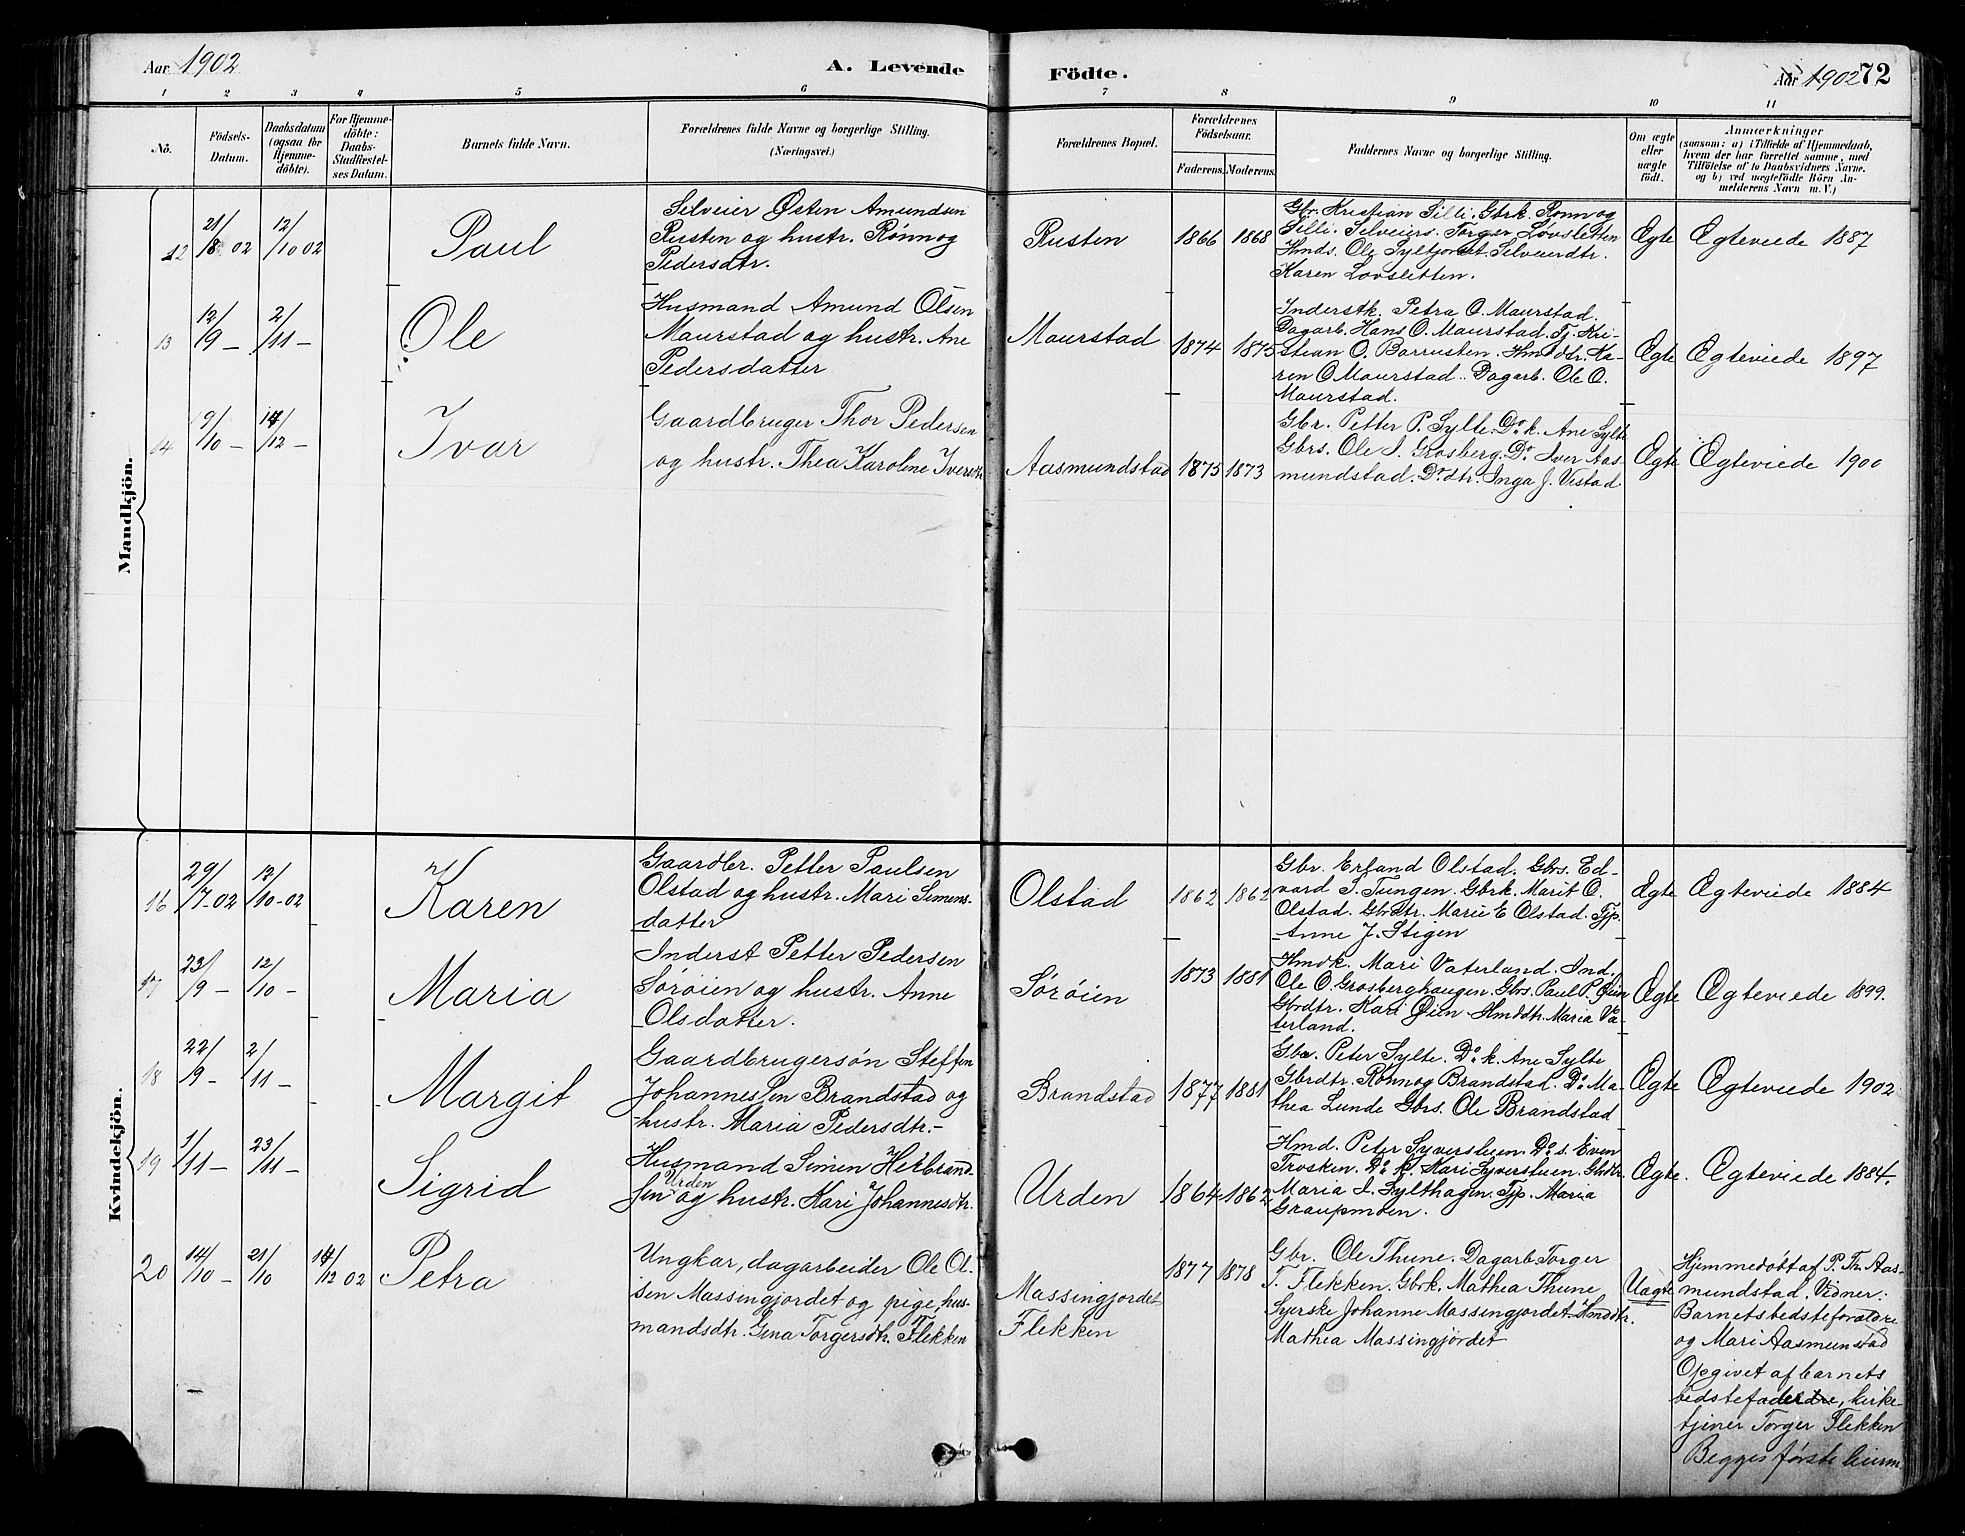 Aar 1902
A. Levende
Födte.
Aar 1902 72
1 2 3 4 5 6 7 8 9 10 11
No.
Födsels-
Datum.
Daabsdatum
(ogsaa for
Hjemme-
döbte).
For Hjemme-
döbte:
Daabs-
Stadfæstel-
ses Datum.
Barnets fulde Navn.
Forældrenes fulde Navne og borgerlige Stilling.
(Næringsvei.)
Forældrenes Bopæl.
Forældrenes
Födselsaar.
Faderens. Moderens.
Faddernes Navne og borgerlige Stilling.
Om ægte
eller
uægte
födt.
Anmærkninger
(saasom: a) i Tilfælde af Hjemmedaab,
hvem der har forrettet samme, med
Tilföielse af to Daabsvidners Navne.
og b) ved uægtefödte Börn An-
melderens Navn m. V.)
Mandkjön.
12
21/8 02
12/10 02
Paul
Selveier Østen Amundsen
Rusten og hustr. Rønnog
Pedersdtr.
Rusten
1866 1868
Gbr. Kristian Silli. Gbrk. Rønnog
Silli. Selveiers. Torger Løvsletten
Hmds. Ole Syltjordet. Selveierdtr.
Karen Lovsletten.
Ægte
Ægteviede 1887
13
12/9 -
2/11 -
Ole
Husmand Amund Olsen
Maurstad og hustr. Ane
Pedersdatter
Maurstad
1874 1875
Inderstk. Petra O. Maurstad.
Dagarb. Hans O. Maurstad. Tj. Kri-
stian O. Barrusten. Hmddtr. Ka-
ren O Maurstad. Dagarb. Ole O.
Maurstad.
Ægte
Ægteviede 1897
14
9/10 -
14/12 -
Ivar
Gaardbruger Thor Pedersen
og hustr. Thea Karoline Iversdtr
Aasmundstad
1875 1873
Gbr. Petter P. Sylte. Do. k. Ane Sylte
Gbrs. Ole I. Grosberg. Do. Iver Aas-
mundstad. Do. dtr. Inga J. Vistad
Ægte
Ægteviede 1900
Kvindekjön.
16
29/7-02
12/10-02
Karen
Gaardbr. Petter Paulsen
Olstad og hustr. Mari Simens-
datter
Olstad
1862 1862
Gbr. Erland Olstad. Gbrs. Ed-
vard I. Tungen. Gbrk. Marit O.
Olstad. Gbrdtr. Marie E Olstad. Tjp.
Anne J. Stigen
Ægte
Ægteviede 1884
17
23/9 -
12/10 -
Maria
Inderst Petter Pedersen
Sørøien og hustr. Anne
Olsdatter.
Sørøien
1873 1881
Hmdk. Mari Vaterland. Ind.
Ole O. Grosberghaugen. Gbrs. Paul P. Øien
Gbrdtr. Kari Øien Hmddtr. Maria Va-
terland.
Ægte
Ægteviede 1899.
18
22/9 -
2/11 -
Margit
Gaardbrugersøn Steffen
Johannessen Brandstad og
hustr. Maria Pedersdtr.
Brandstad
1877 1881
Gbr. Peter Sylte. Do. k. Ane Sylte
Gbrdtr. Rønnog Brandstad. Do. Ma-
thea Lunde Gbrs. Ole Brandstad
Ægte
Ægteviede 1902
19
1/11 -
23/11 -
Sigrid
Husmand Simen Herbrand-
sen Urden og hustr. Kari Johannesdtr.
Urden
1864 1862
Hmd. Peter Syversluen. Do. s. Even
Trosken. Do. k. Kari Syversluen. Gbrdtr.
Maria I. Sylthagen. Tjp. Maria
Graupmoen.
Ægte.
Ægteviede 1884.
20
14/10 -
21/10
14/12 02
Petra
Ungkar, dagarbeider Ole Ol-
sen Massingjordet og pige, hus-
mandsdtr. Gena Torgersdtr. Flekken
Massingjordet
Flekken
1877 1878
Gbr. Ole Thune. Dagarb Torger
T. Flekken. Gbrk. Mathea Thune
Syerske Johanne Massingjordet Hmddtr.
Mathea Massingjordet
Uægte
Hjemmedøbt af P. Th. Aas-
mundstad, Vidner:
Barnets bedsteforældre
og Mari Aasmunstad
Opgivet af barnets
bedstefader, kirke-
tjener Torger Flekken
Begges første leierm.